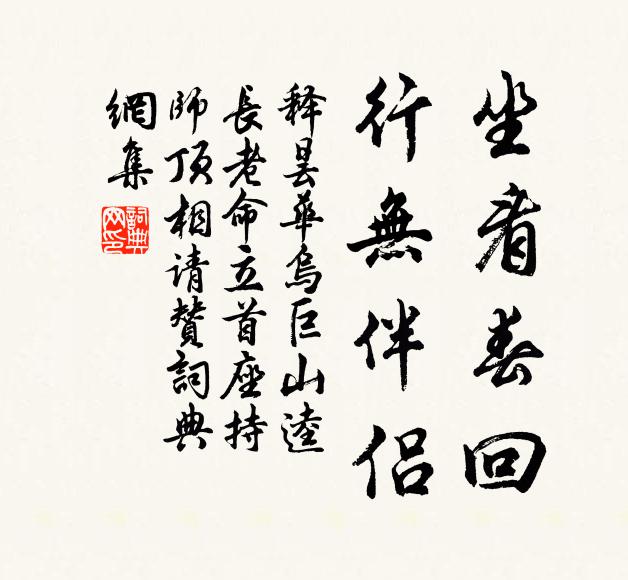 坐看春回
行無伴侶
释曇華烏巨山逵
長老命立首座持
師頂相请賛詞典
網集
詞典網印